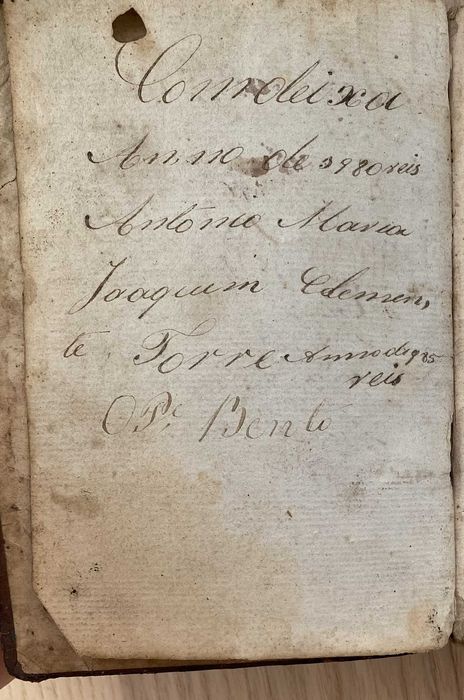 Comdeixa
Anno de 3980 reis
António Maria
Joaquim Clemen,
te, Torre Anno de 985
reis
O Pe Bento